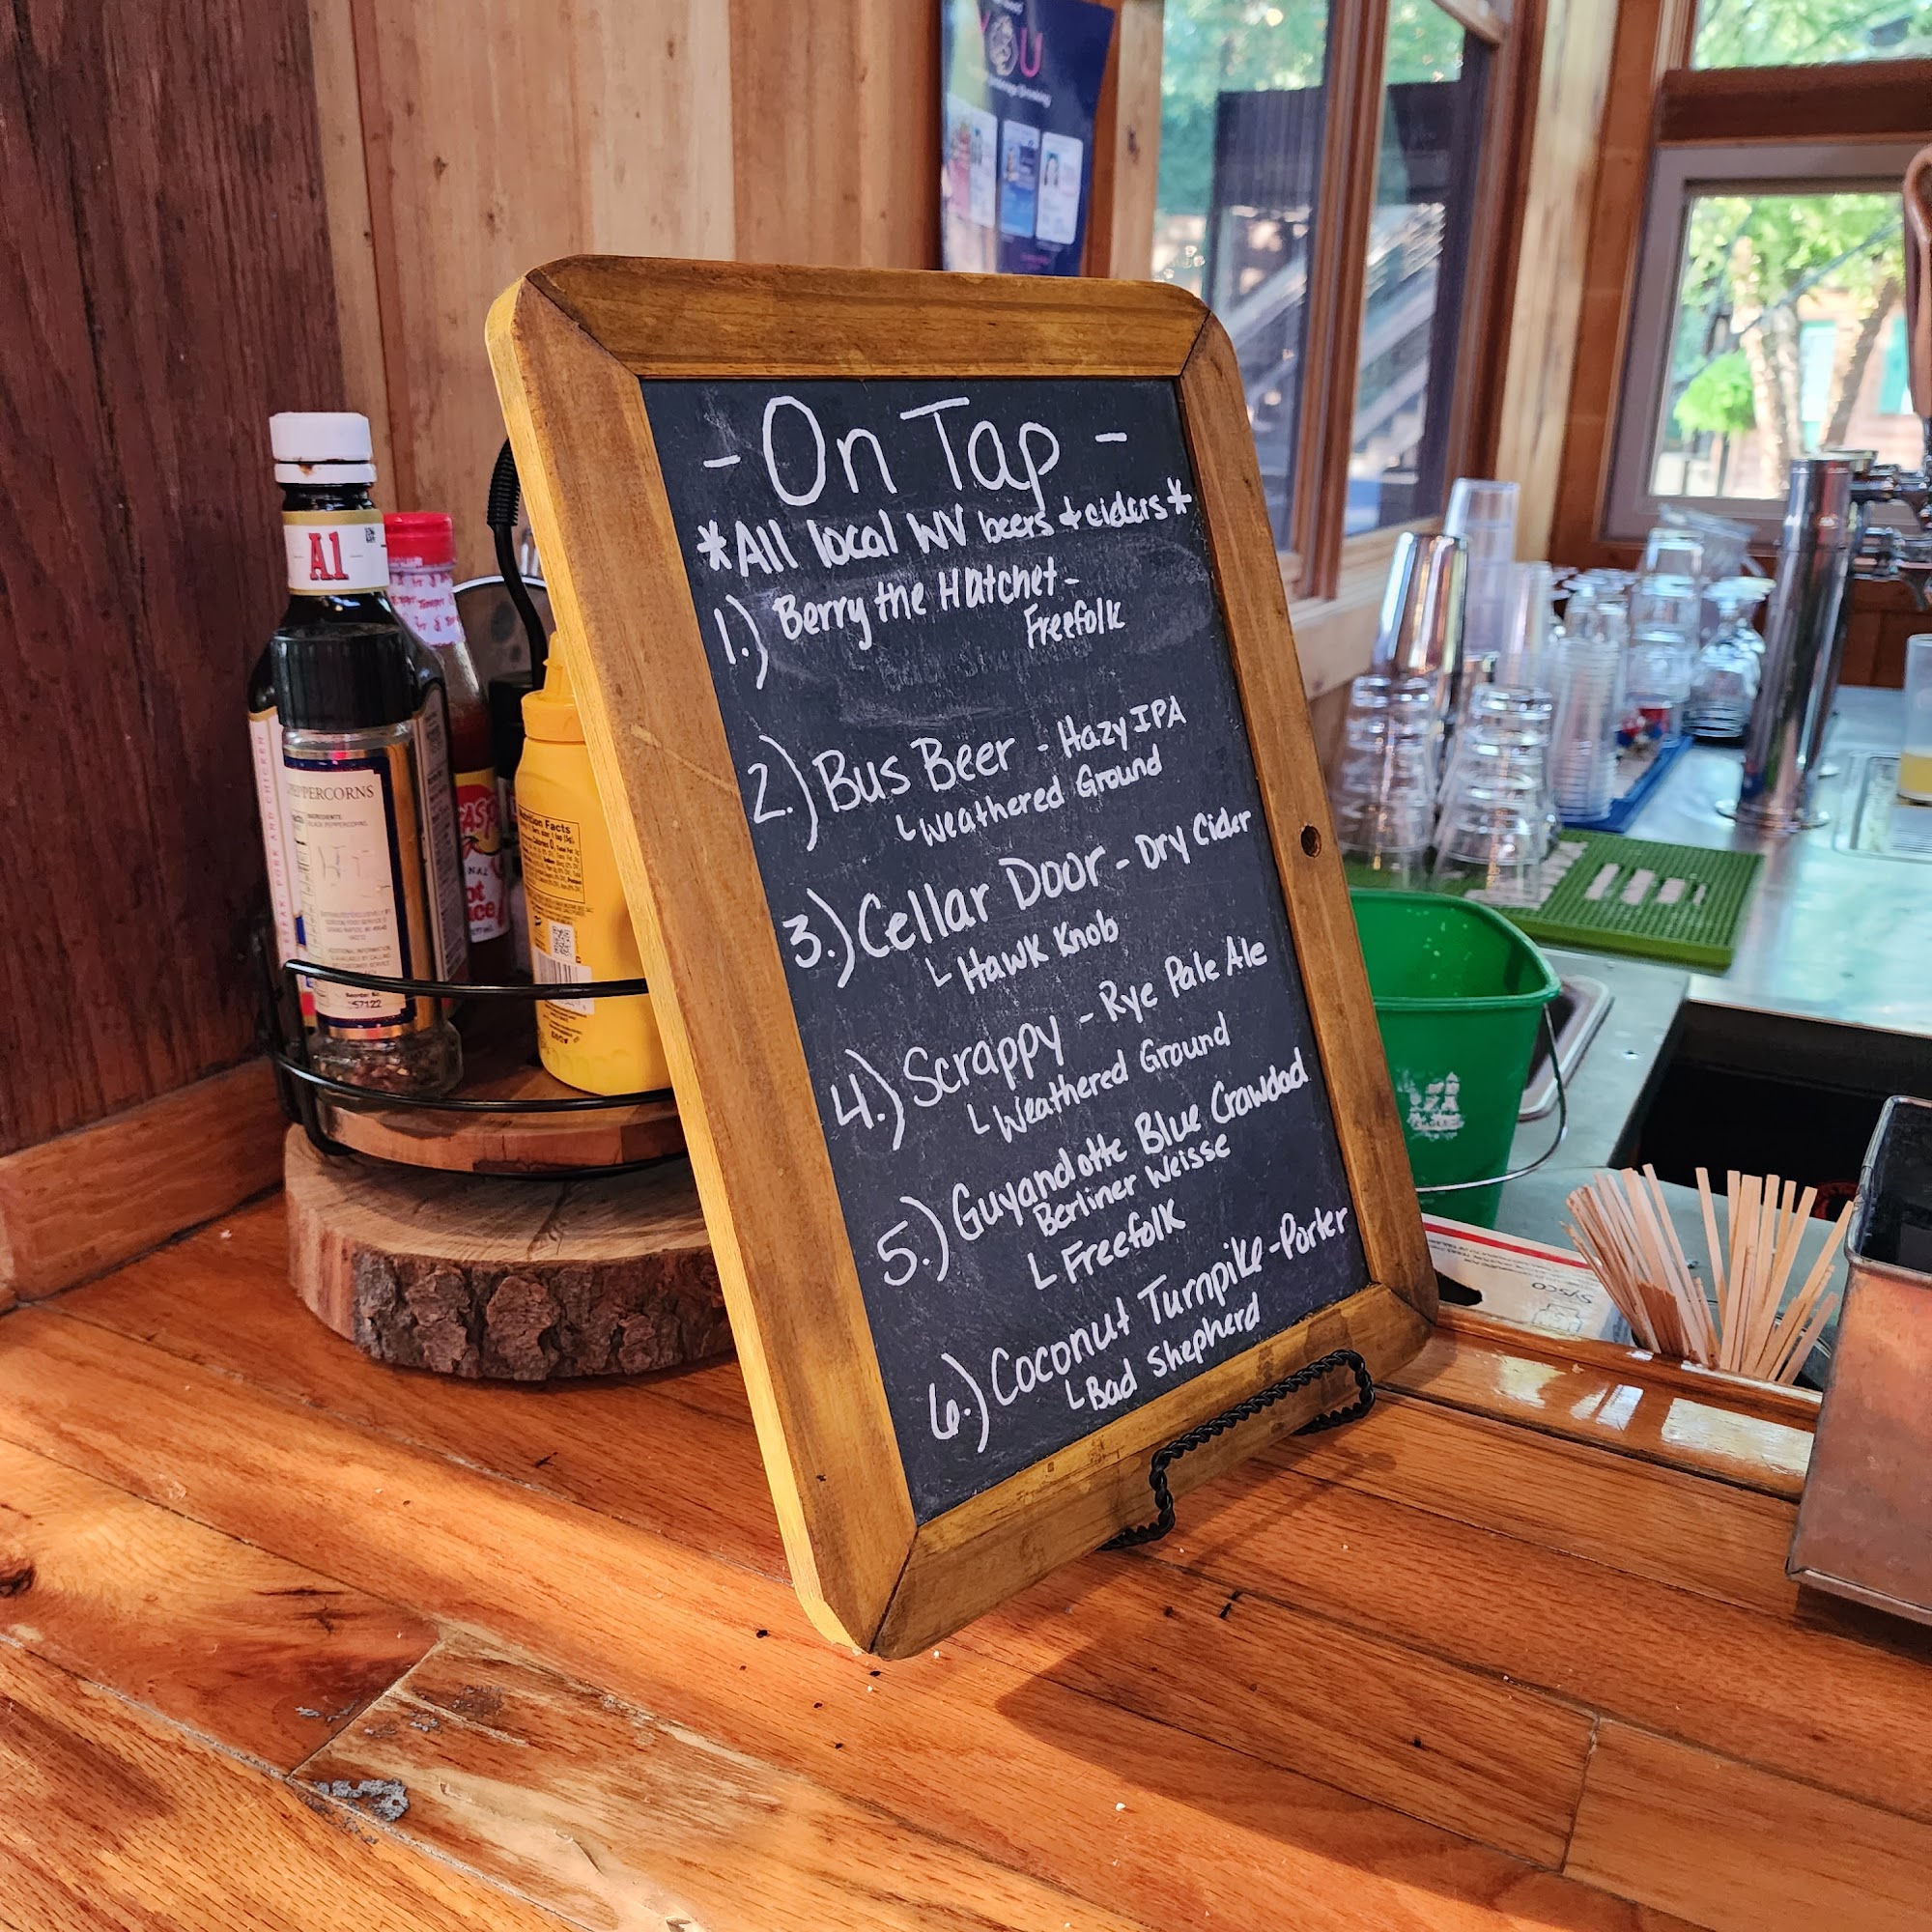 - On Tap -
*All local WV beers & ciders*
1.) Berry the Hatchet -
Freefolk
2.) Bus Beer - Hazy IPA
Weathered Ground
3.) Cellar Door - Dry Cider
Hawk Knob
4.) Scrappy - Rye Pale Ale
Weathered Ground
5.) Guyandotte Blue Crawdad
Berliner Weisse
Freefolk
6.) Coconut Turnpike - Porter
Bad Shepherd
A1
PEPPERCORNS
57122
Nutrition Facts
YOU
Sysco